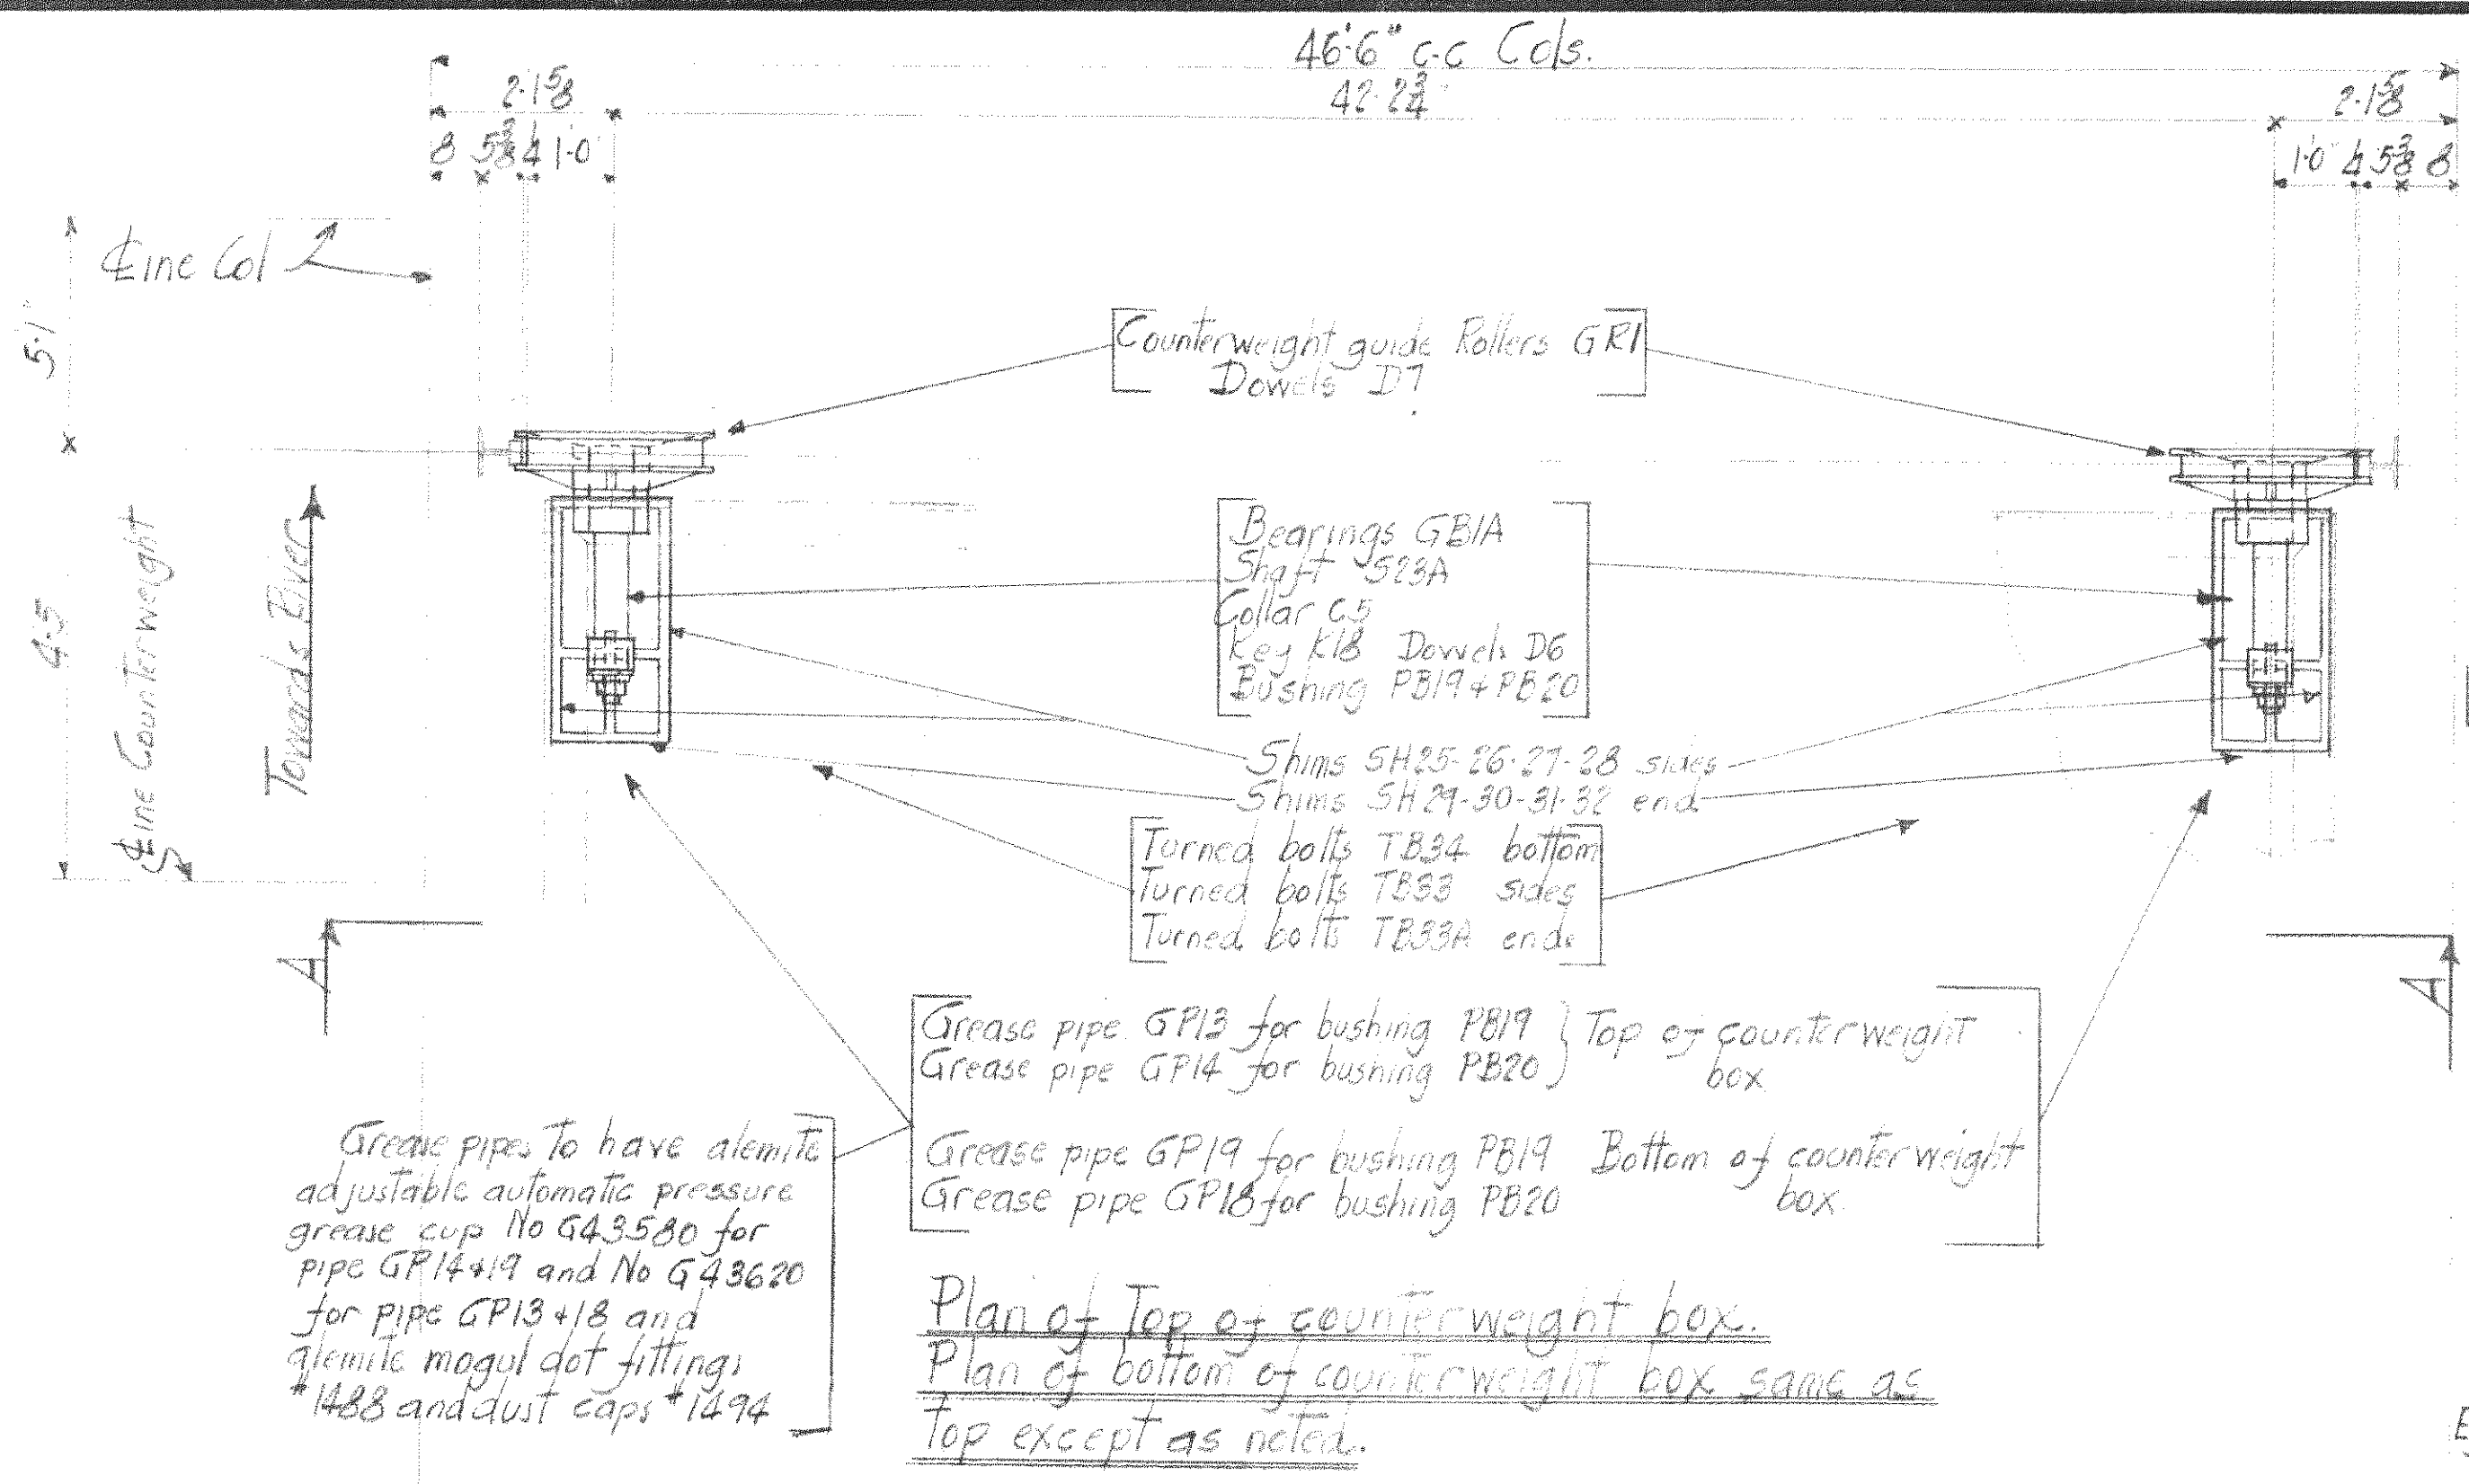 46'-6" c-c Cols.
42-2 3/4"
2-1 5/8
8 5 3/8 1/4 1-0
2-1 5/8
1-0 1/4 5 3/8 8
℄ine Col
5-1"
4-5
℄ine Counterweight
Towards River
Counterweight guide Rollers GR1
Dowels D7
Bearings GB1A
Shaft S23A
Collar C5
Key K18 Dowels D6
Bushing PB19 & PB20
Shims SH25-26-27-28 sides
Shims SH29-30-31-32 end
Turned bolts TB34 bottom
Turned bolts TB33 sides
Turned bolts TB33A ends
A
A
Grease pipe GP13 for bushing PB19 } Top of counterweight
Grease pipe GP14 for bushing PB20 box
Grease pipe GP19 for bushing PB19 Bottom of counterweight
Grease pipe GP18 for bushing PB20 box.
Grease pipes to have alemite
adjustable automatic pressure
grease cup No G43580 for
pipe GP14 & 19 and No G43620
for pipe GP13 & 18 and
alemite mogul dot fittings
#1488 and dust caps #1494
Plan of Top of counterweight box.
Plan of bottom of counterweight box same as
Top except as noted.